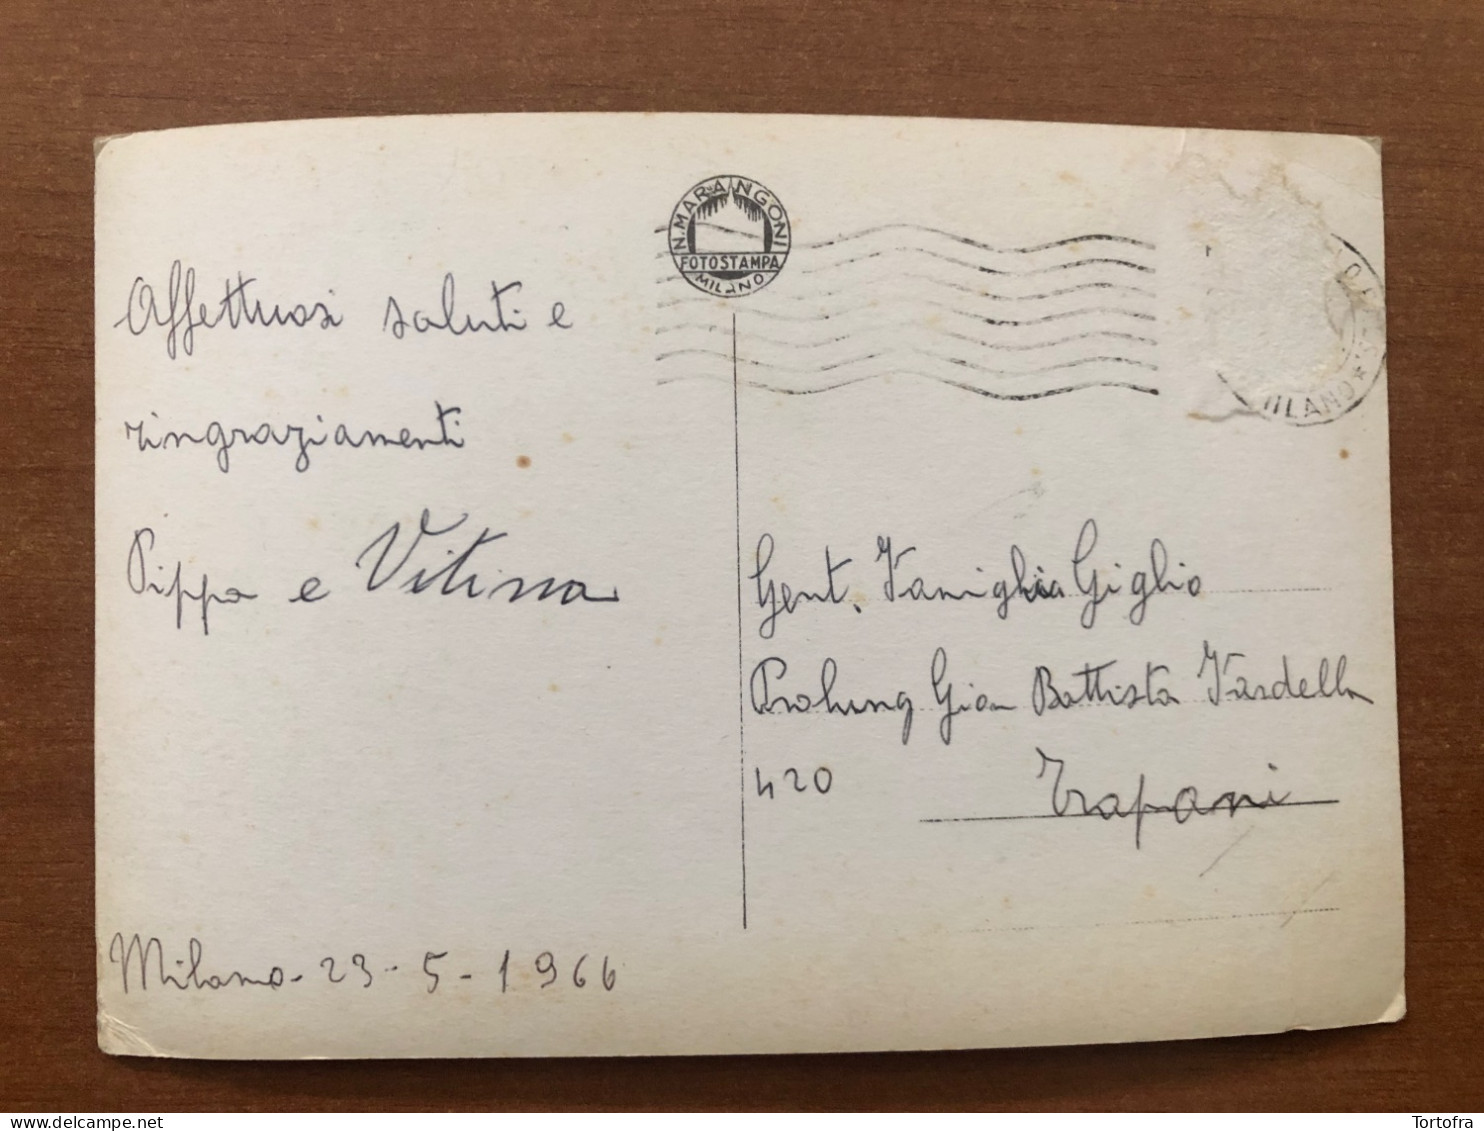 Affettuosi saluti e
ringraziamenti
Pippo e Vitina
Milano - 23 - 5 - 1966
N. MARANGONI
FOTOSTAMPA
MILANO
MILANO *
Gent. Famiglia Giglio
Prolung Gian Battista Fardella
420
Trapani
Tortofra